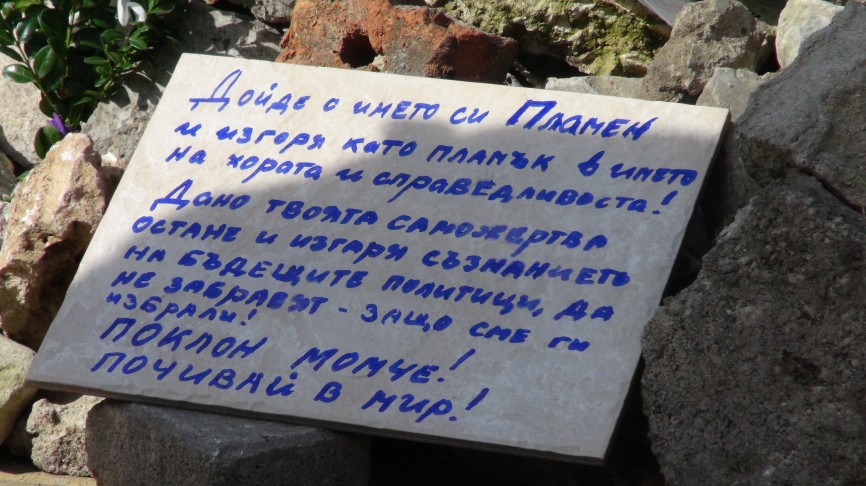 Дойде с името си Пламен
и изгоря като пламък в името
на хората и справедливоста!
Дано твоята саможертва
остане и изгаря съзнанието
на бъдещите политици, да
не забравят - защо сме ги
избрали!
ПОКЛОН МОМЧЕ!
ПОЧИВАЙ В МИР!